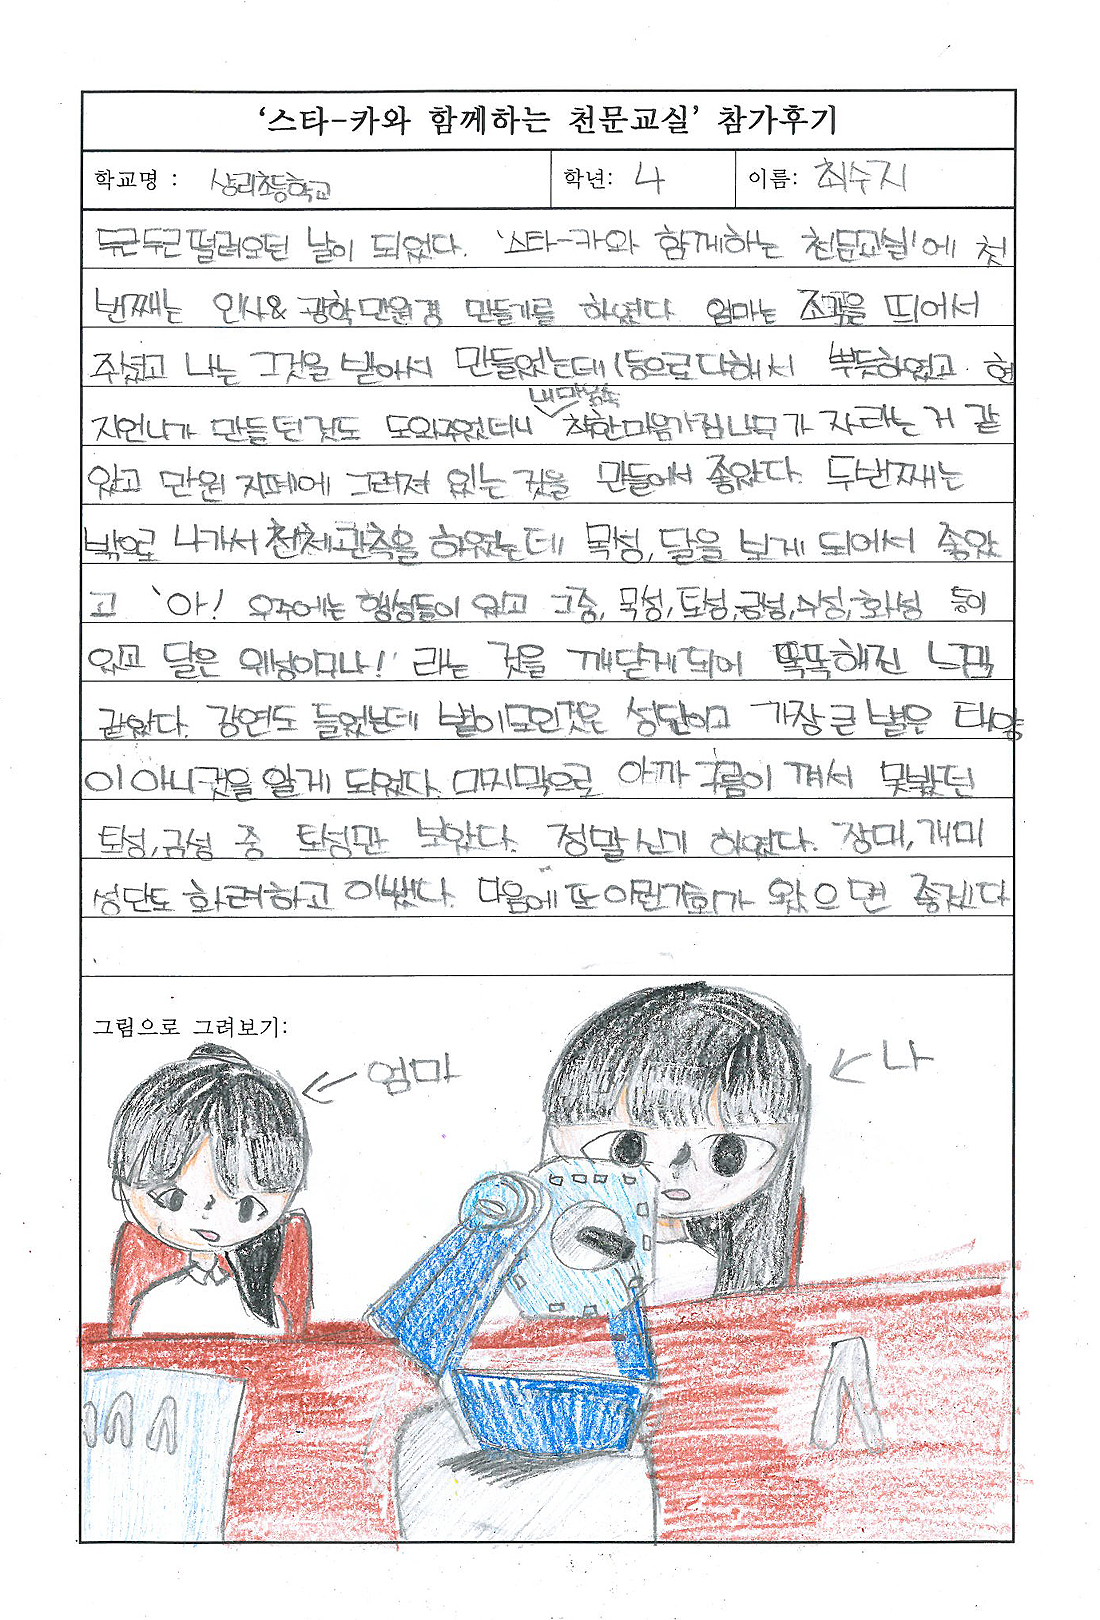 '스타-카와 함께하는 천문교실' 참가후기
학교명 : 상리초등학교 학년: 4 이름: 최수지
두근두근 떨려오던 날이 되었다. '스타-카와 함께하는 천문교실'에 첫
번째는 인사& 광학만원경 만들기를 하였다. 엄마는 조각을 띄어서
주셨고 나는 그것을 받아서 만들었는데 뿌듯하였고. 현
내 마음속
지언니가 만들던것도 도와주었더니 착한마음가짐나무가 자라는 거 같
았고 만원 지폐에 그려져 있는 것을 만들어서 좋았다. 두번째는
밖으로 나가서 천체관측을 하였는데 목성, 달을 보게 되어서 좋았
고 '아! 우주에는 행성들이 있고 그중, 목성, 토성, 금성, 수성, 화성 등이
있고 달은 위성이구나!' 라는 것을 깨닫게되어 똑똑해진 느낌
같았다. 강연도 들었는데 별이모인것은 성단이고 가장 큰 별은 태양
이 아니 것을 알게 되었다. 마지막으로 아까 구름이 껴서 못봤던
토성, 금성 중 토성만 보았다. 정말 신기 하였다. 장미, 개미
성단도 화려하고 이뻤다. 다음에 또 이런기회가 왔으면 좋겠다
그림으로 그려보기:
엄마
나